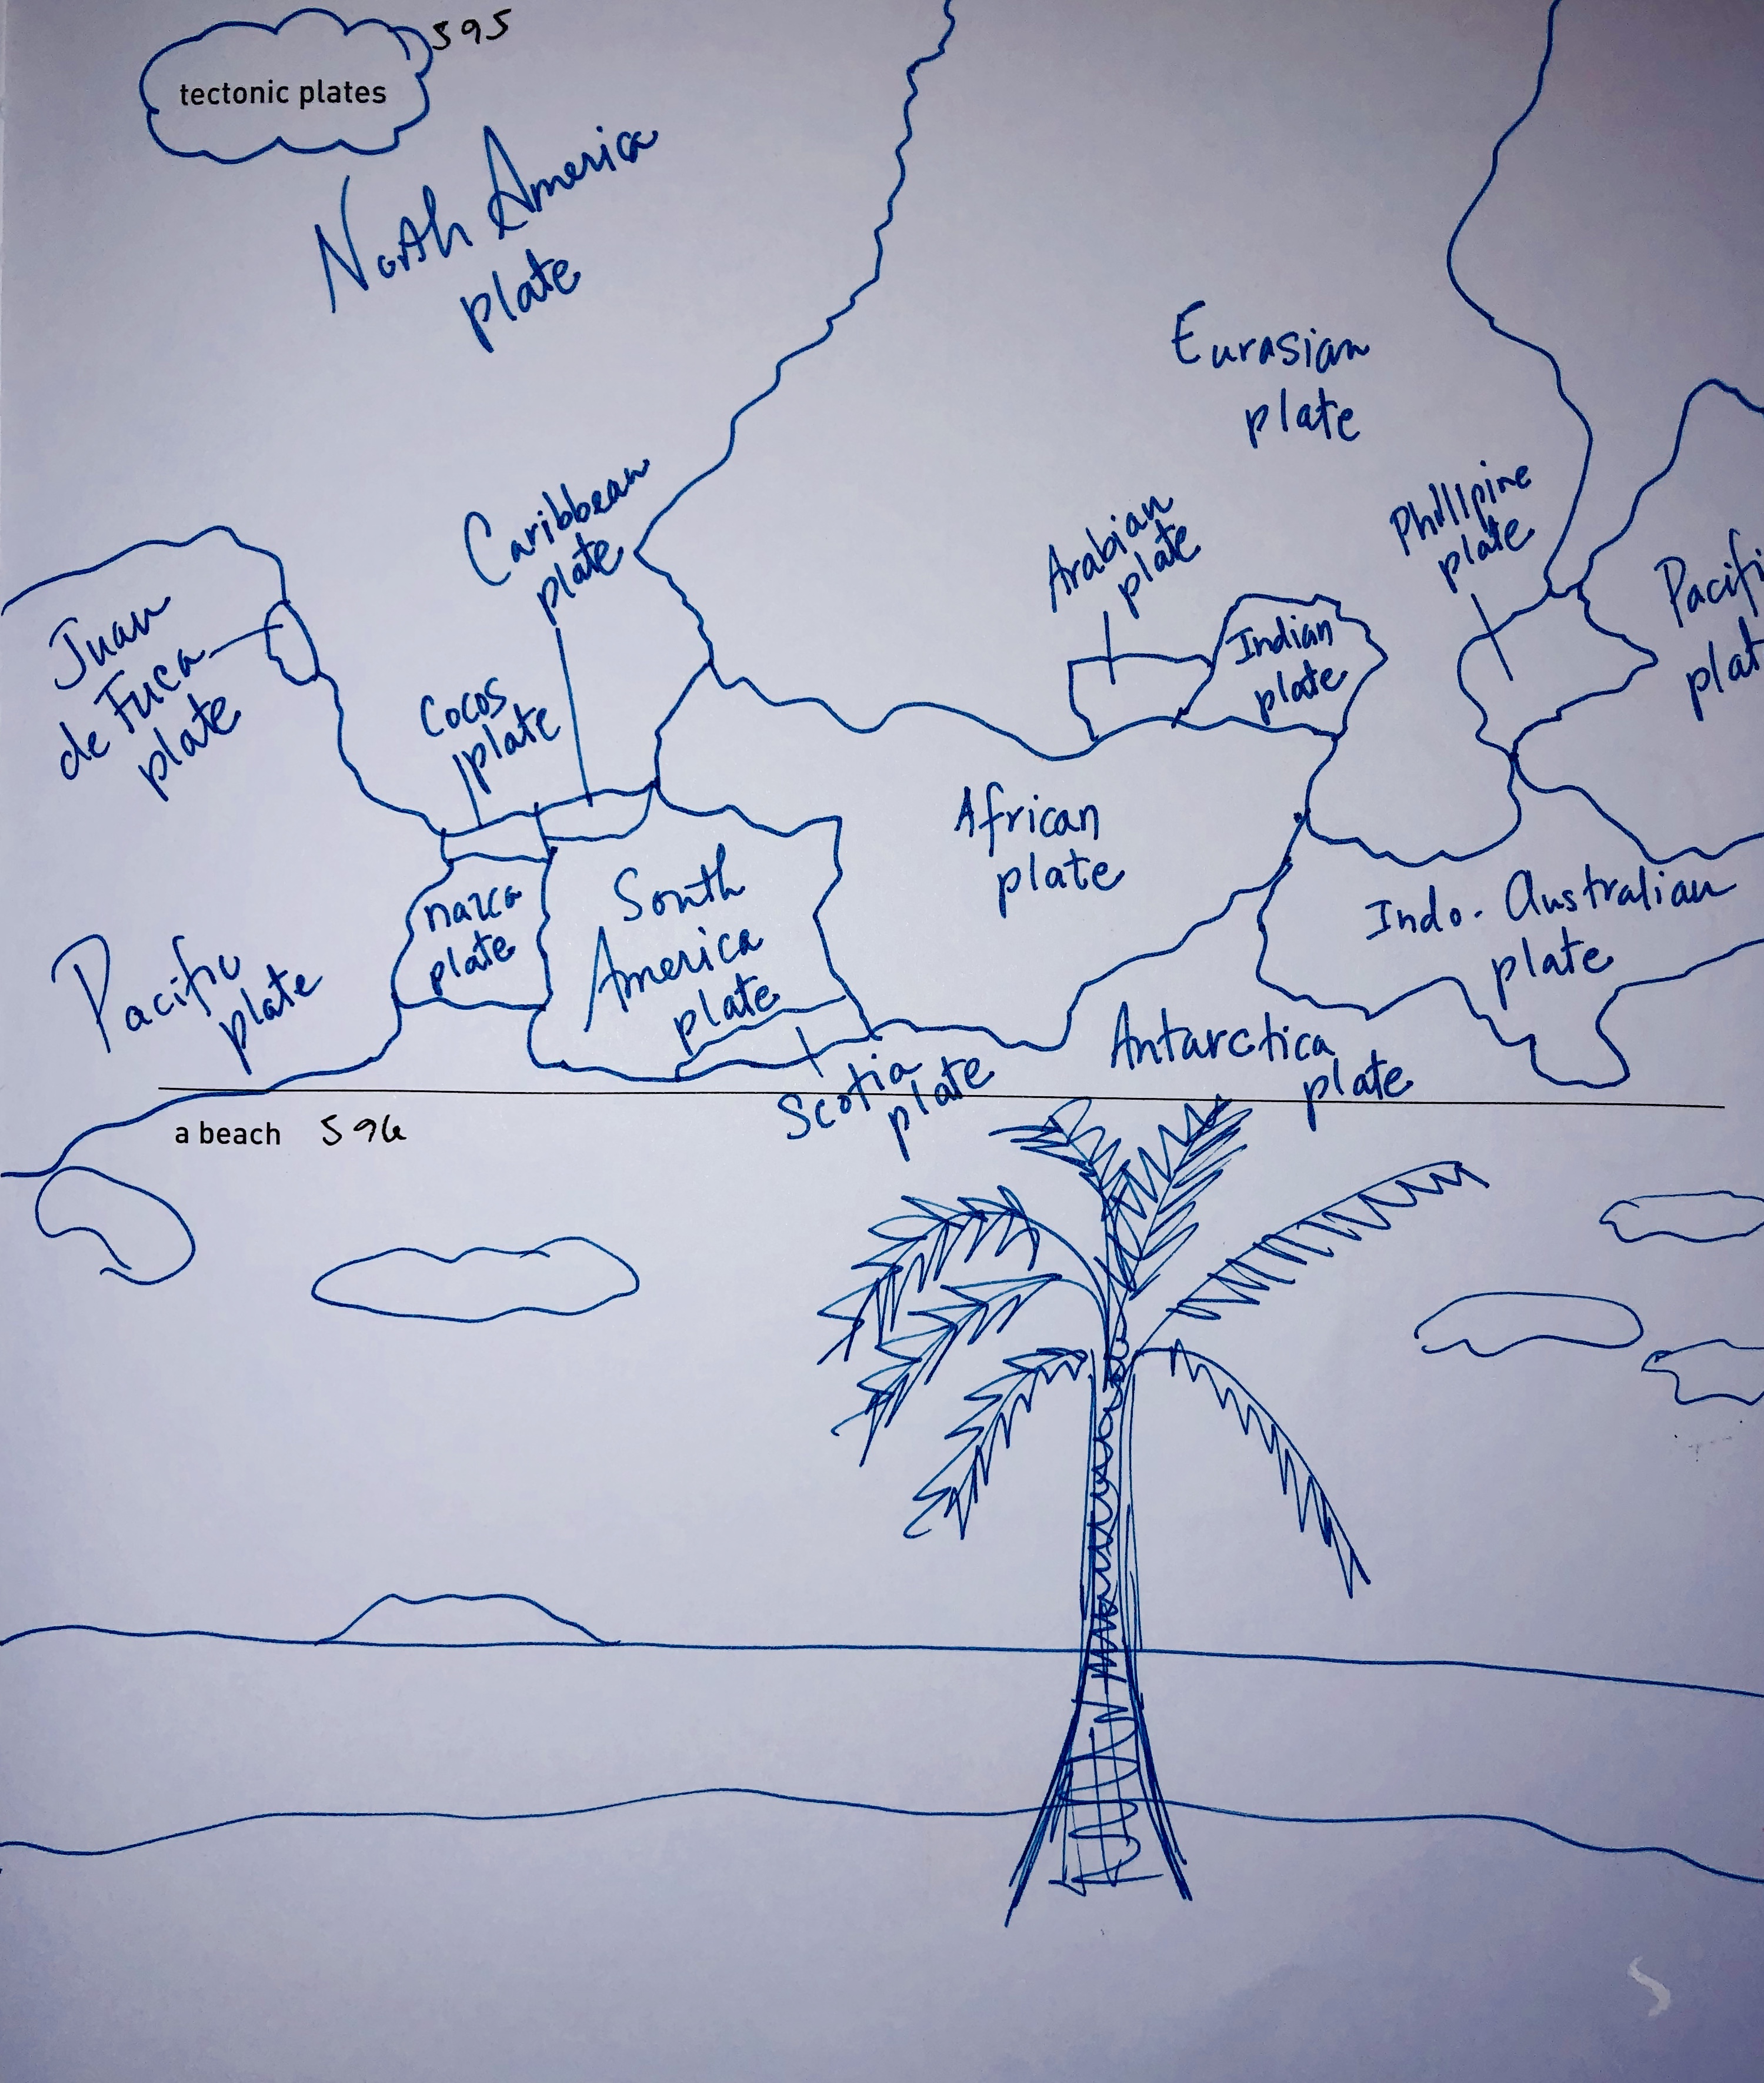 595
tectonic plates
North America
plate
Eurasian
plate
Caribbean
plate
Arabian
plate
Phillipine
plate
Juan
de Fuca
plate
Cocos
plate
Indian
plate
Pacifi
plat
African
plate
nazca
plate
South
America
plate
Indo-Australian
plate
Pacific
plate
Antarctica
plate
Scotia
plate
a beach 596